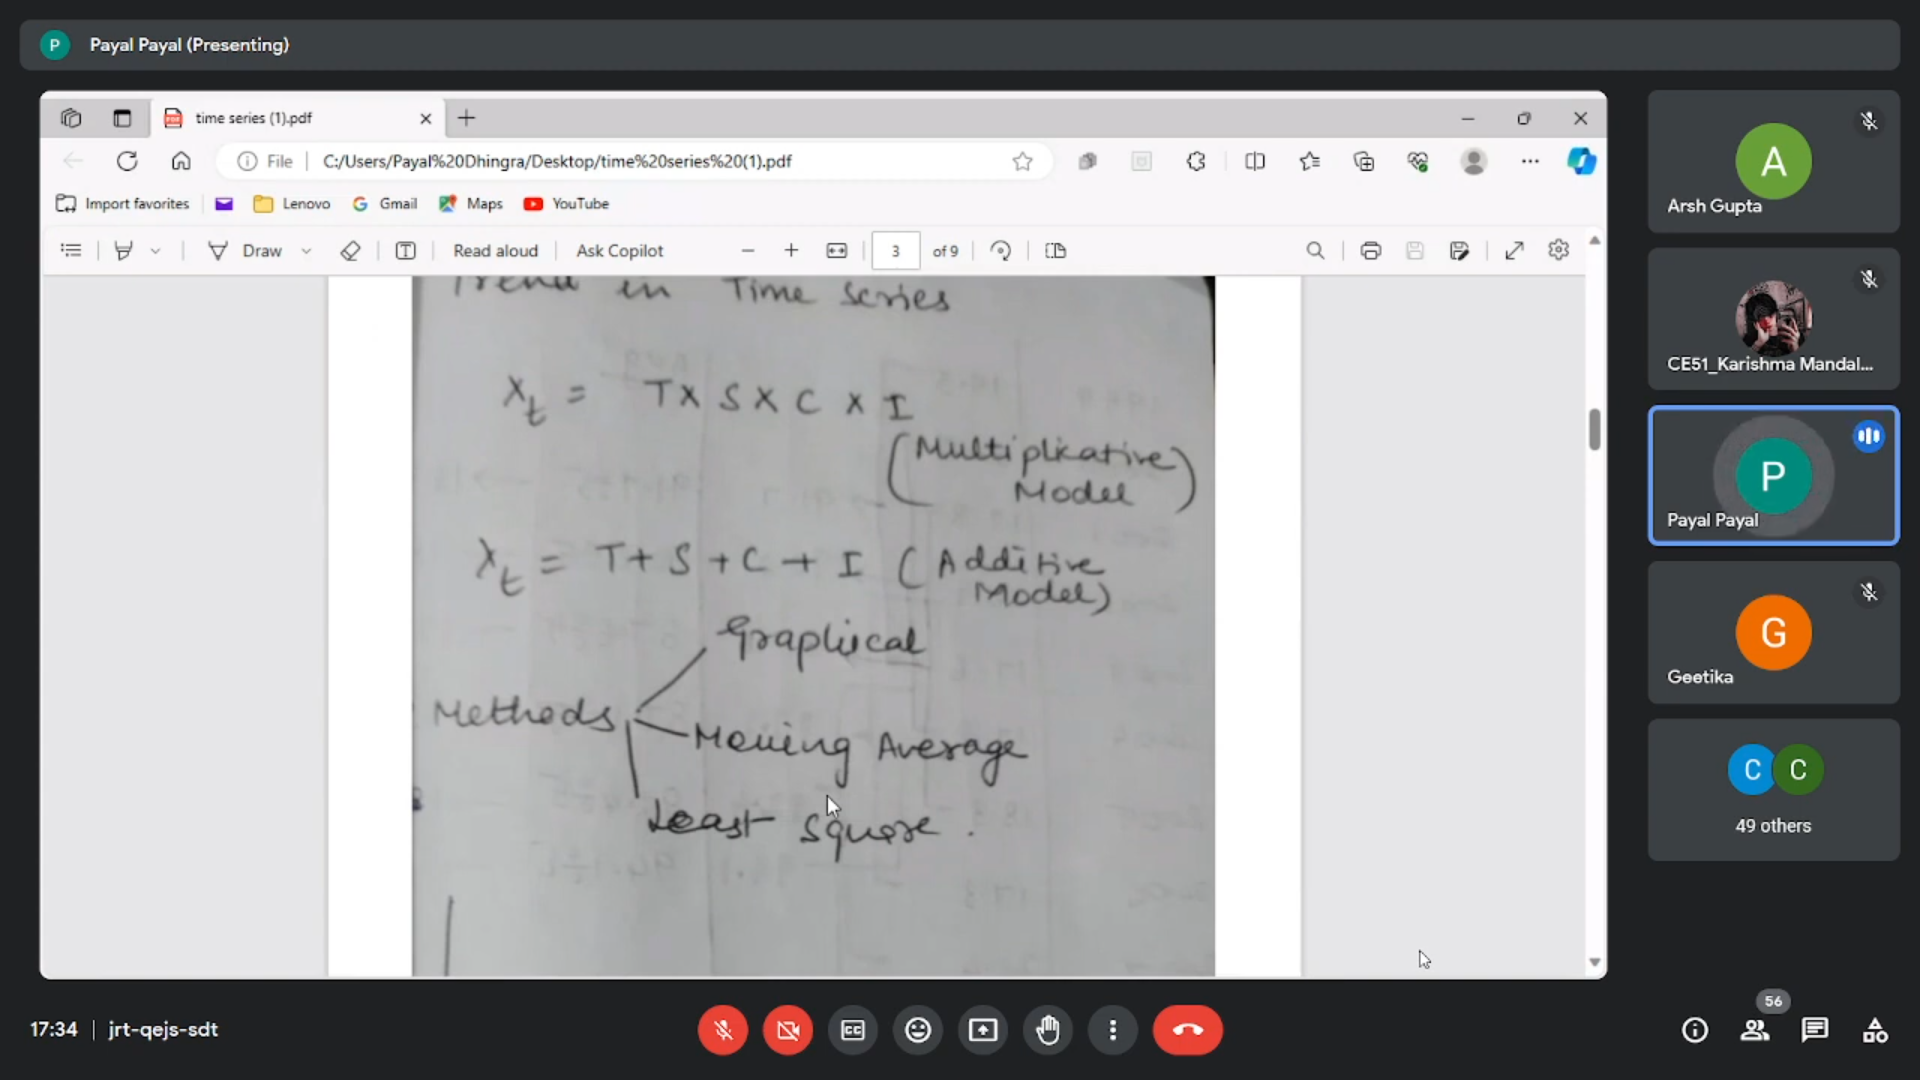 P Payal Payal (Presenting)
time series (1).pdf
File C:/Users/Payal%20Dhingra/Desktop/time%20series%20(1).pdf
Import favorites Lenovo Gmail Maps YouTube
Draw Read aloud Ask Copilot 3 of 9
Trend in Time Series
X_t = T X S X C X I
(Multiplicative
Model)
X_t = T + S + C + I (Additive
Model)
Graphical
Methods
Moving Average
Least Square.
A
Arsh Gupta
CE51_Karishma Mandal...
P
Payal Payal
G
Geetika
C C
49 others
17:34 | jrt-qejs-sdt
CC
56